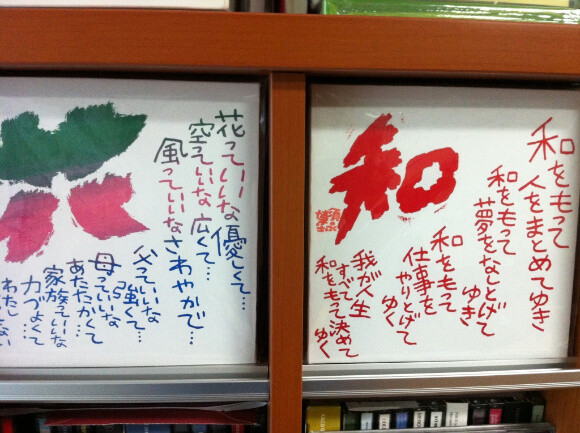 花っていいな優しくて…
空っていいな広くて…
風っていいなさわやかで…
父っていいな
強くて…
母っていいな
あたたかくて
家族っていいな
力づよくて
和
和をもって
人をまとめてゆき
和をもって
夢をなしとげて
ゆき
和をもって
仕事を
やりとげて
ゆく
我が人生
すべて
和をもって決めて
ゆく